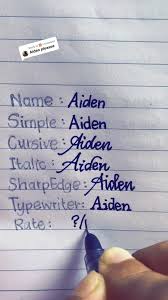 Aiden please
Name : Aiden
Simple : Aiden
Cursive : Aiden
Italic : Aiden
SharpEdge : Aiden
Typewriter : Aiden
Rate : ?/